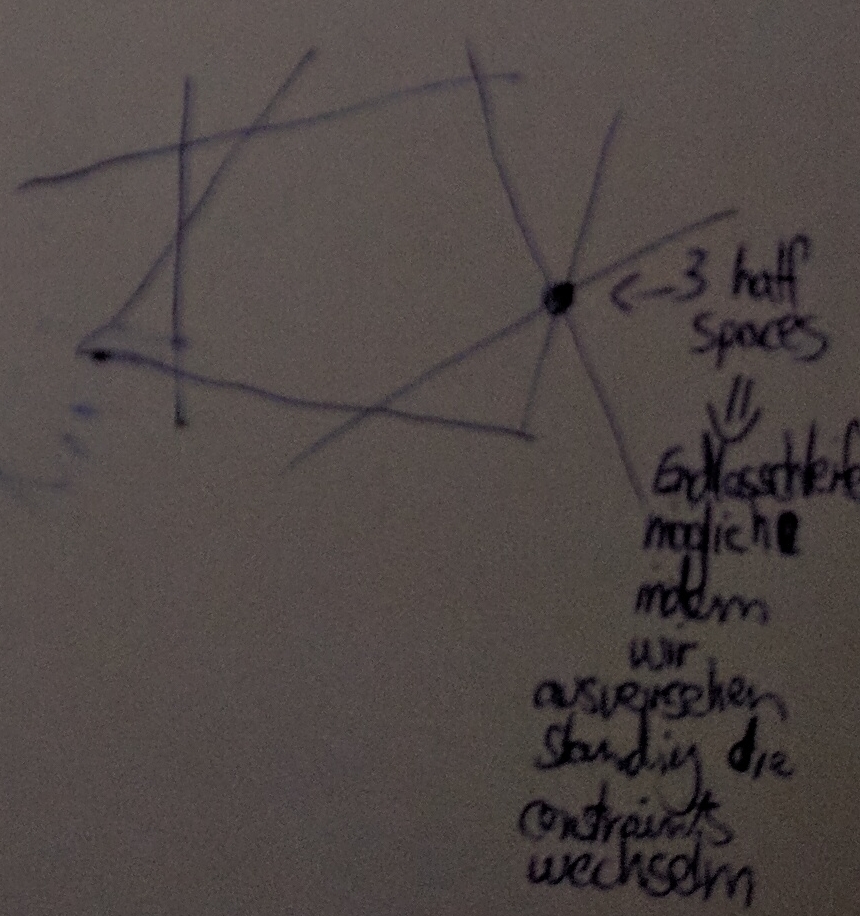 ←3 half
spaces
⇓
Endlosschleife
möglich
indem
wir
ausversehen
ständig die
constraints
wechseln